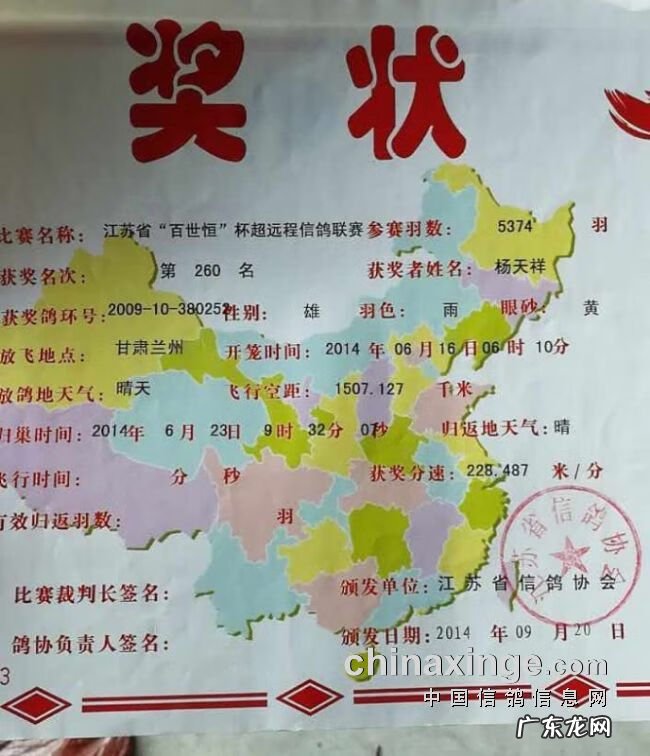 奖状
比赛名称：江苏省“百世恒”杯超远程信鸽联赛 参赛羽数：5374 羽
获奖名次：第 260 名 获奖者姓名：杨天祥
获奖鸽环号：2009-10-380252 性别：雄 羽色：雨 眼砂：黄
放飞地点：甘肃兰州 开笼时间：2014 年 06 月 16 日 06 时 10 分
放鸽地天气：晴天 飞行空距：1507.127 千米
归巢时间：2014 年 6 月 23 日 9 时 32 分 07 秒 归返地天气：晴
飞行时间： 分 秒 获奖分速：228.487 米/分
有效归返羽数： 羽
比赛裁判长签名： 颁发单位：江苏省信鸽协会
鸽协负责人签名： 颁发日期：2014 年 09 月 20 日
江苏省信鸽协会
3
chinaxinge.com
中国信鸽信息网
广东龙网